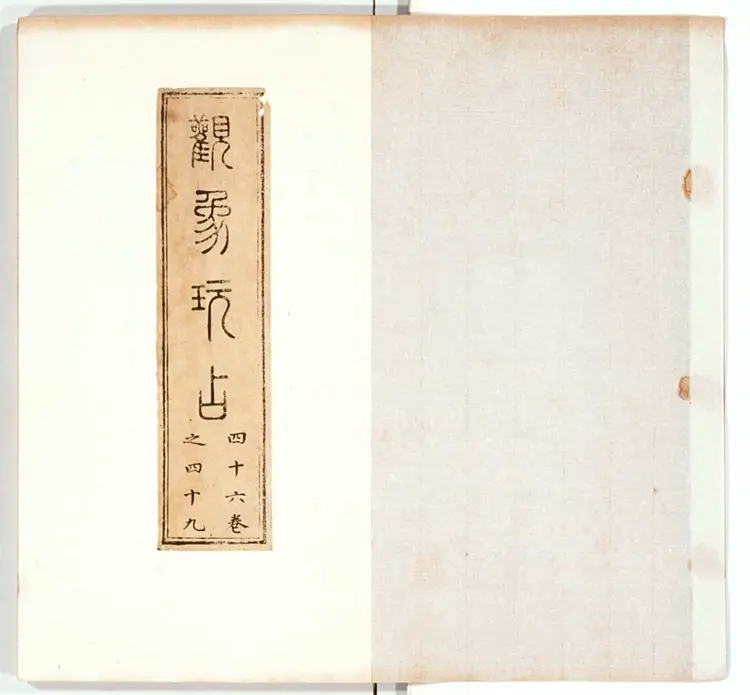 觀象玩占
四十六卷
之四十九